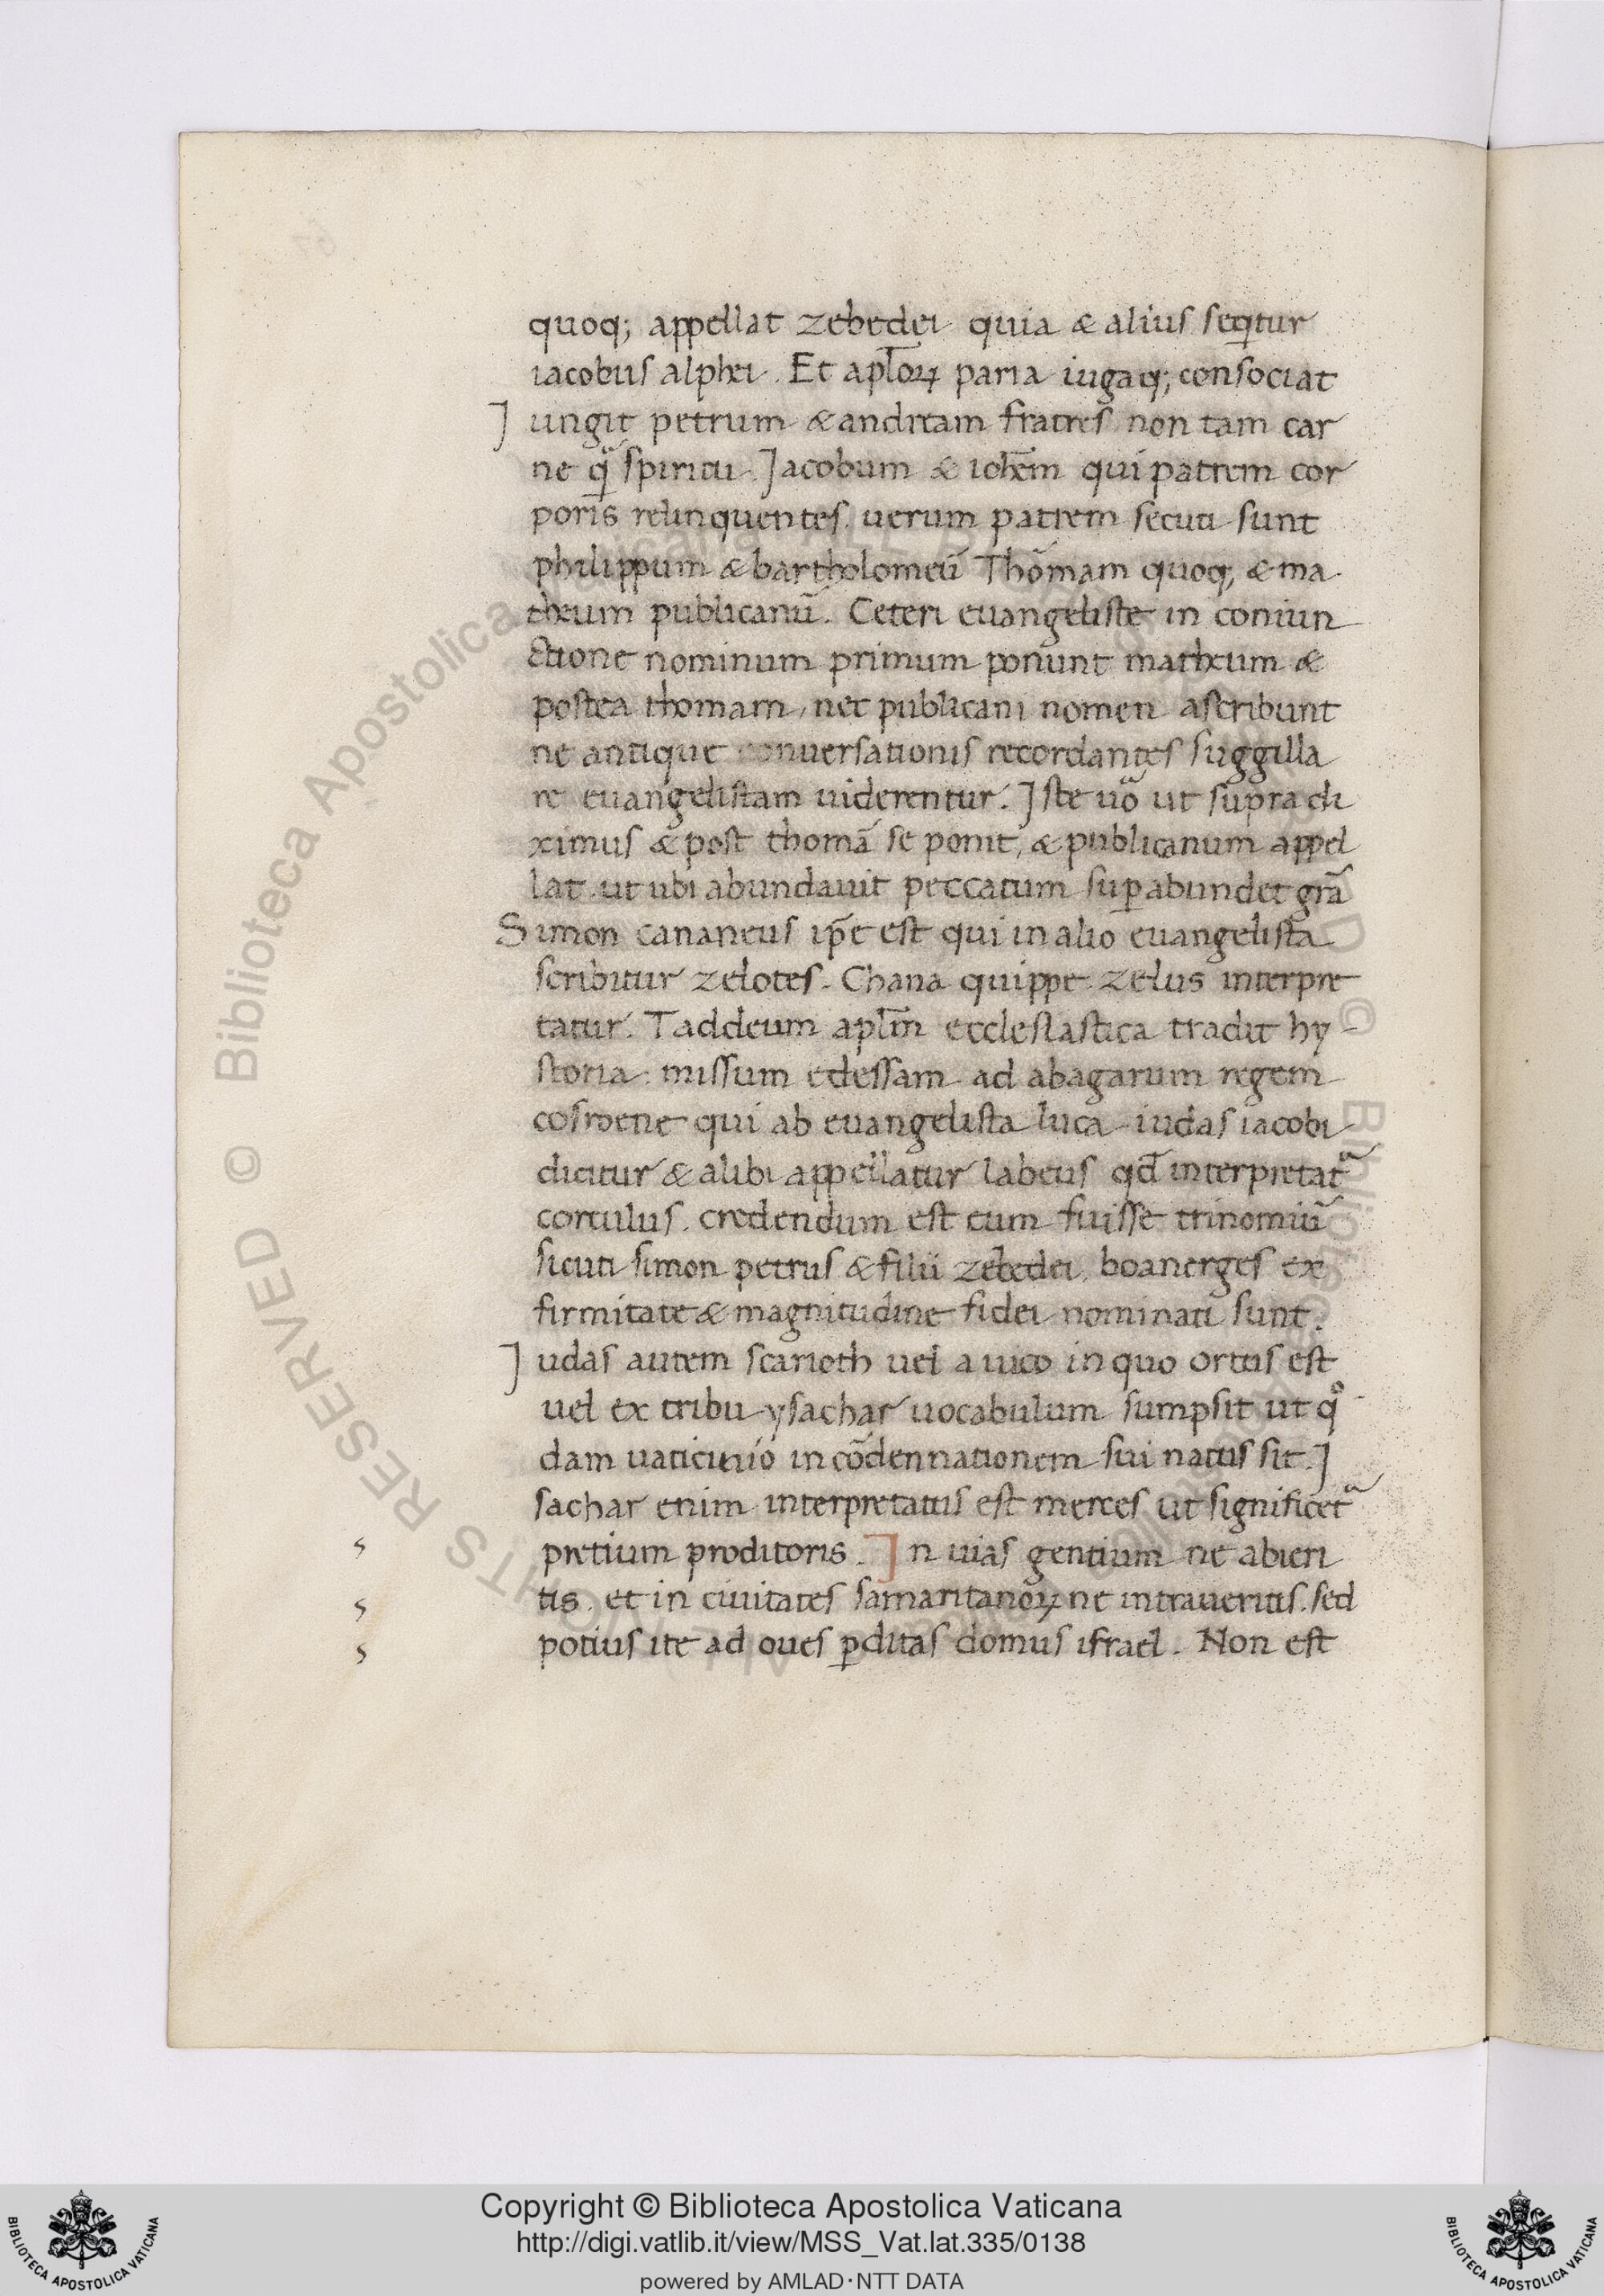 quoq; appellat zebedei quia & alius seqtur
iacobus alphei. Et apl̄oꝝ paria iugaq; consociat
Jungit petrum & andream fratres non tam car
ne qᷓ spiritu. Jacobum & ioh̄em qui patrem cor
poris relinquentes. uerum patrem secuti sunt
philippum & bartholomeū Thōmam quoq; & ma
theum publicanū. Ceteri euangeliste in coniun
ctione nominum primum ponunt matheum &
postea thomam, nec publicani nomen ascribunt
ne antique conuersationis recordantes suggilla
re euangelistam uiderentur. Iste uō ut supra di
ximus & post thomā se ponit, & publicanum appel
lat. ut ubi abundauit peccatum suꝑabundet grā
Simon cananeus ip̄e est qui in alio euangelista
scribitur zelotes. Chana quippe zelus interpre
tatur. Taddeum apl̄m ecclesiastica tradit hy-
storia missum edessam ad abagarum regem
cosroene qui ab euangelista luca iudas iacobi
dicitur & alibi appellatur labeus qđ interpretatᷓ
corculus. credendum est eum fuisse trinomiū
sicuti simon petrus & filii zebedei, boanerges ex
firmitate & magnitudine fidei nominati sunt.
Judas autem scarioth uel a uico in quo ortus est
uel ex tribu ysachar uocabulum sumpsit ut qͦ
dam uaticinio in cōdennationem sui natus sit. I
sachar enim interpretatus est merces ut significetᷓ
pretium proditoris. In uias gentium ne abieri
tis. et in ciuitates samaritanoꝝ ne intraueritis. sed
potius ite ad oues ꝑditas domus israel. Non est
Copyright © Biblioteca Apostolica Vaticana
http://digi.vatlib.it/view/MSS_Vat.lat.335/0138
powered by AMLAD·NTT DATA